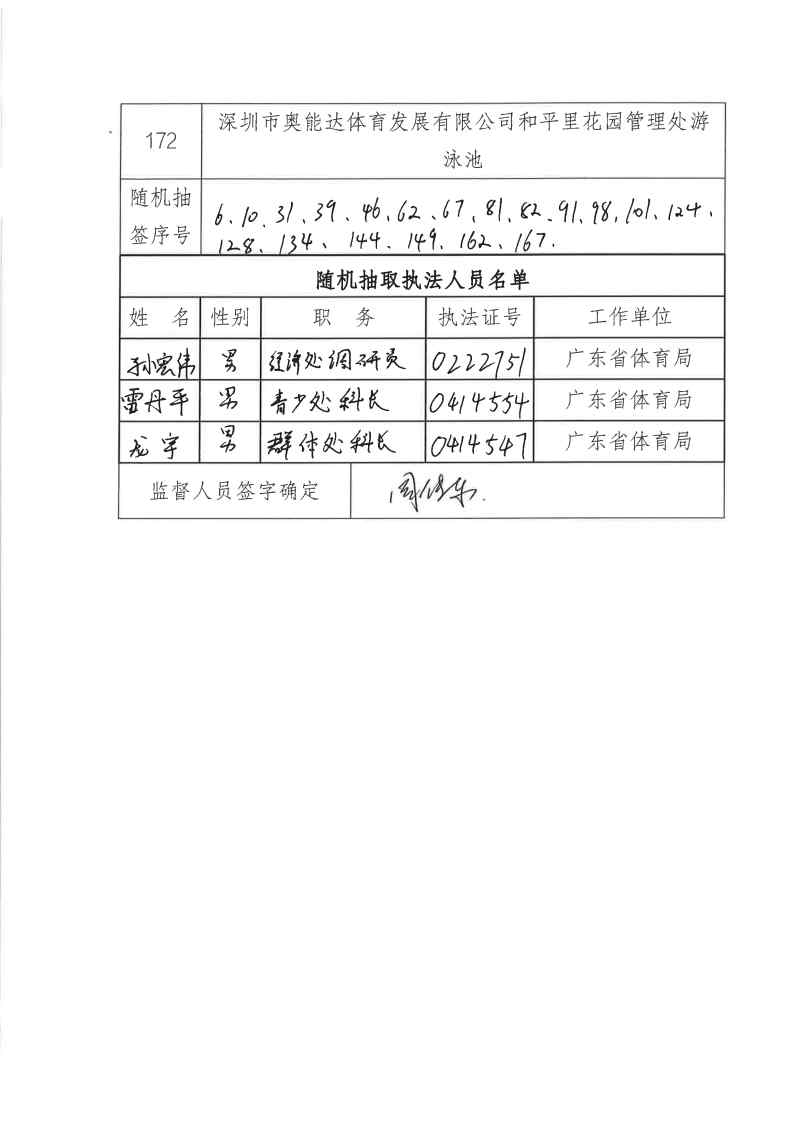 172
深圳市奥能达体育发展有限公司和平里花园管理处游
泳池
随机抽
签序号
6、10、31、39、46、62、67、81、82、91、98、101、124、
128、134、144、149、162、167.
随机抽取执法人员名单
姓 名 性别 职 务 执法证号 工作单位
孙宏伟 男 经济处调研员 0222751 广东省体育局
雷丹平 男 青少处科长 0414554 广东省体育局
龙宇 男 群体处科长 0414547 广东省体育局
监督人员签字确定